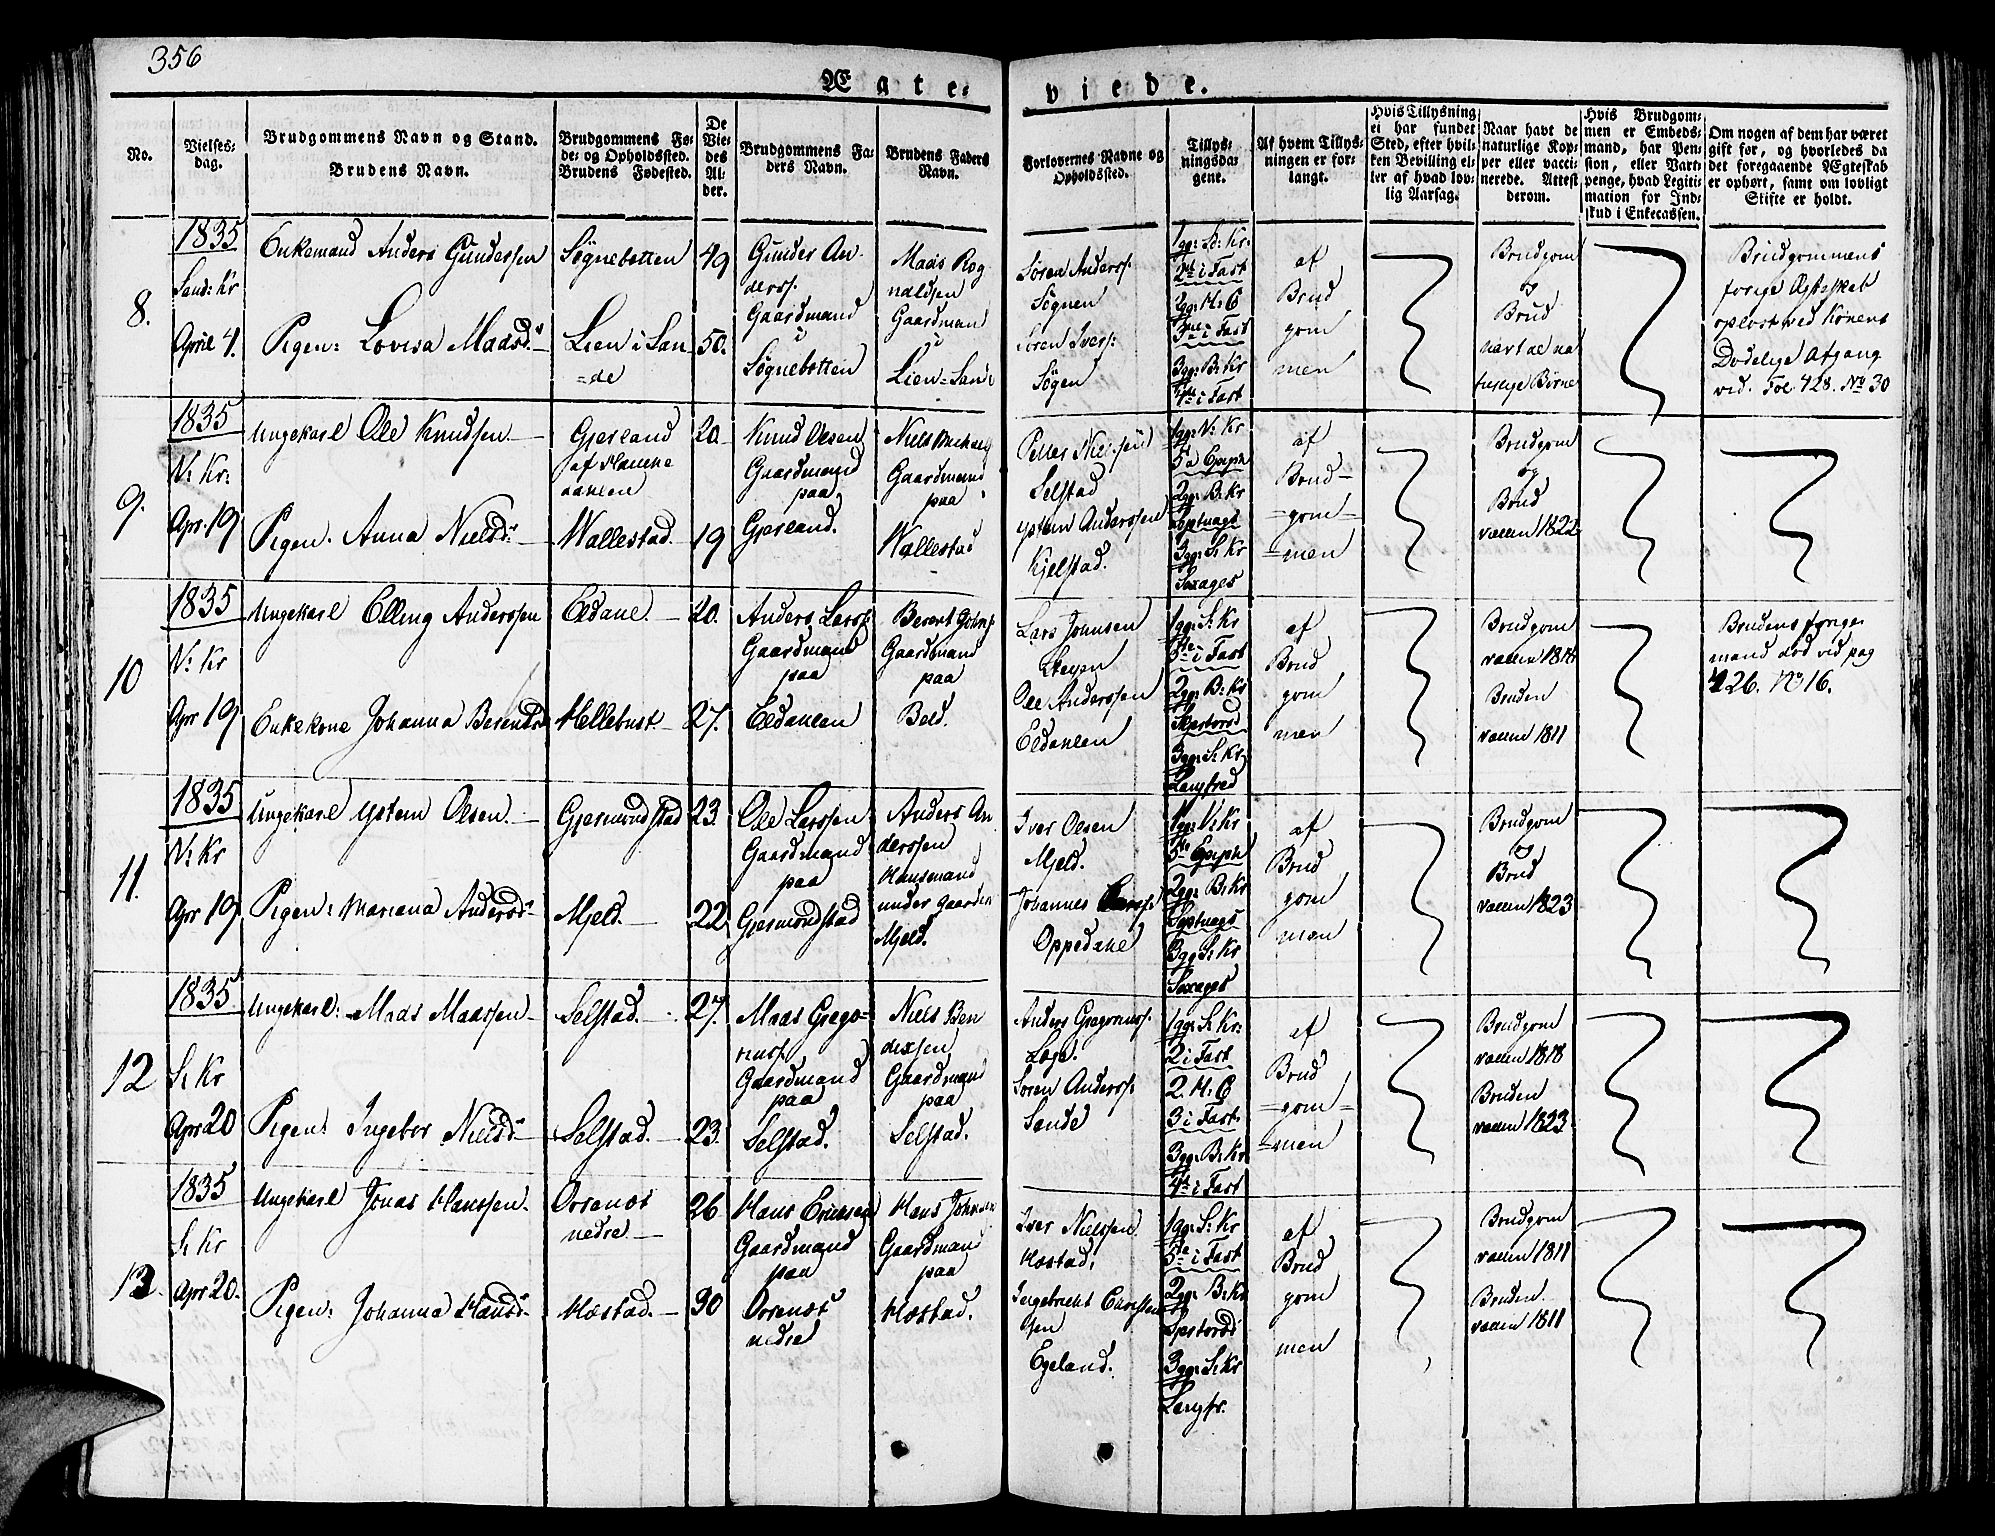 356
Ægte-
viede.
No.
Vielses-
dag.
Brudgommens Navn og Stand.
Brudens Navn.
Brudgommens Fø-
de- og Opholdssted.
Brudens Fødested.
De
Vie-
des
Al-
der.
Brudgommens Fa-
ders Navn.
Brudens Faders
Navn.
Forlovernes Navne og
Opholdssted.
Tillys-
ningsda-
gene.
Af hvem Tillys-
ningen er for-
langt.
Hvis Tillysning
ei har fundet
Sted, efter hvil-
ken Bevilling el-
ler af hvad lov-
lig Aarsag.
Naar havt de
naturlige Kop-
per eller vacci-
nerede. Attest
derom.
Hvis Brudgom-
men er Embeds-
mand, har Pen-
sion, eller Vart-
penge, hvad Legiti-
mation for Ind-
skud i Enkecassen.
Om nogen af dem har været
gift før, og hvorledes da
det foregaaende Ægteskab
er ophørt, samt om lovligt
Skifte er holdt.
8.
1835
Sand: Kr
April 4.
Enkemand Anders Gundersen
Pigen: Lovisa Maasd.
Søgnebotten
Lien i San
=de
49
50.
Gunder An-
derss.
Gaardmand
i
Søgnebotten
Maas Rog
naldsen
Gaardman
i
Lien=Sande
Søren Anderss.
Søgnen
Søren Ivers:
Søgen
1gg: Sd: Kr.
2d i Fast
2gg: H: G
3me i Fast
3gg: B: Kr
4de i Fast
af
Brud
gom
men
Brudgom
og
Brud
havt de na
turlige Børne
Brudgommens
forige Ægteskab
opløst ved Konens
Dødelige Afgang
vid. Fol. 428. No 30
9.
1835
V: Kr:
Apr. 19
Ungekarl Ole Knudsen.
Pigen. Anna Nielsd.
Gjerland
Wallestad.
20
19
Knud Olsen
Gaardmand
paa
Gjerland.
Gaardmand
paa
Wallestad
Petter Nielsen
Selstad
Ystein Anderssen
Kjelstad.
1gg: V: Kr
5 a Epiph
2gg: B: Kr
Septuags
3gg: S: Kr
Sexages
af
Brud-
=gom=
=men
Brudgom
og
Brud
vaccin 1822
10
1835
V: Kr
Apr 19
Ungekarl Elling Anderssen
Enkekone Johanna Berends
Eldane.
Hellebust.
20.
27.
Anders Larss.
Gaardmand
paa
Eldanlen
Berent Johns.
Gaardmand
paa
Beld.
Lars Johnsen
Steyen
Ole Anderssen
Eldanlen
1gg: S: Kr
5te i Fast
2gg: B: Kr
Skertorsd
3gg: S: Kr
Langfred
af
Brud
gom
men
Brudgom
vaccin 1818
Bruden
vaccin 1811
Brudens forige
mand død vid pag
426. No 16.
11.
1835
V: Kr
Apr 19
Ungekarl Ystein Olsen.
Pigen: Mariana Andersd.
Gjermundstad
Mjeld.
23.
22.
Ole Larssen
Gaardmand
paa
Gjermondstad
Anders An
derssen
Huusmand
under Gaarden
Mjeld.
Iver Olsen
Mjeld.
Johannes Larss.
Oppedahl
1gg: V: Kr
5te Epiph
2gg: B: Kr
Septuags
3gg S: Kr
Sexages
af
Brud
gom
men
Brudgom
og
Brud
vaccin 1823
12
1835
S: Kr
Apr 20
Ungekarl: Maas Maassen
Pigen: Ingebor Nielsd.
Selstad.
Selstad.
27.
23.
Maas Grego=
riuss.
Gaardmand
paa
Selstad.
Niels Ben
dixsen
Gaardmand
paa
Selstad.
Anders Gregoriuss.
Søren Anderss.
Sande
1gg: S: Kr.
2 i Fast
2. H: G
3 i Fast.
3gg: B: Kr
4de i Fast
af
Brud
=gom=
=men
Brudgom
vaccin 1818
Bruden
vaccin 1823.
13.
1835
S: Kr
Apr 20.
Ungekarl Jonas Hanssen.
Pigen: Johanna Hansd.
Orsenøs
nedre
Hostad.
26
30
Hans Ericksen
Gaardmand
paa
Orsenøs
nedre
Hans Johnsen
Gaardmand
paa
Hostad.
Iver Nielssen.
Hostad,
Ingebricht Christen
sen
Egeland.
1gg: S: Kr
5te i Fast
2gg: B: Kr
3gg: S: Kr
Langfr.
af
Brud
gom
men
Brudgom
vaccin 1811
Bruden
vaccin 1811